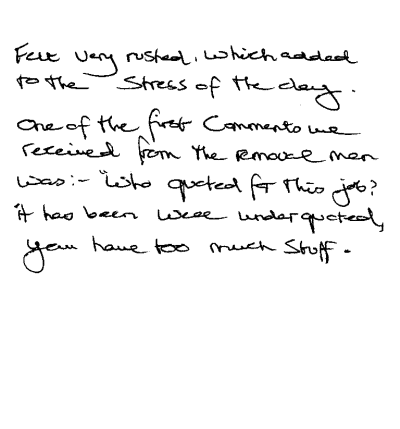 Felt very rushed, which added
to the stress of the day.
One of the first comments we
received from the removal men
was:- "Who quoted for this job?
it has been well under quoted,
you have too much stuff.